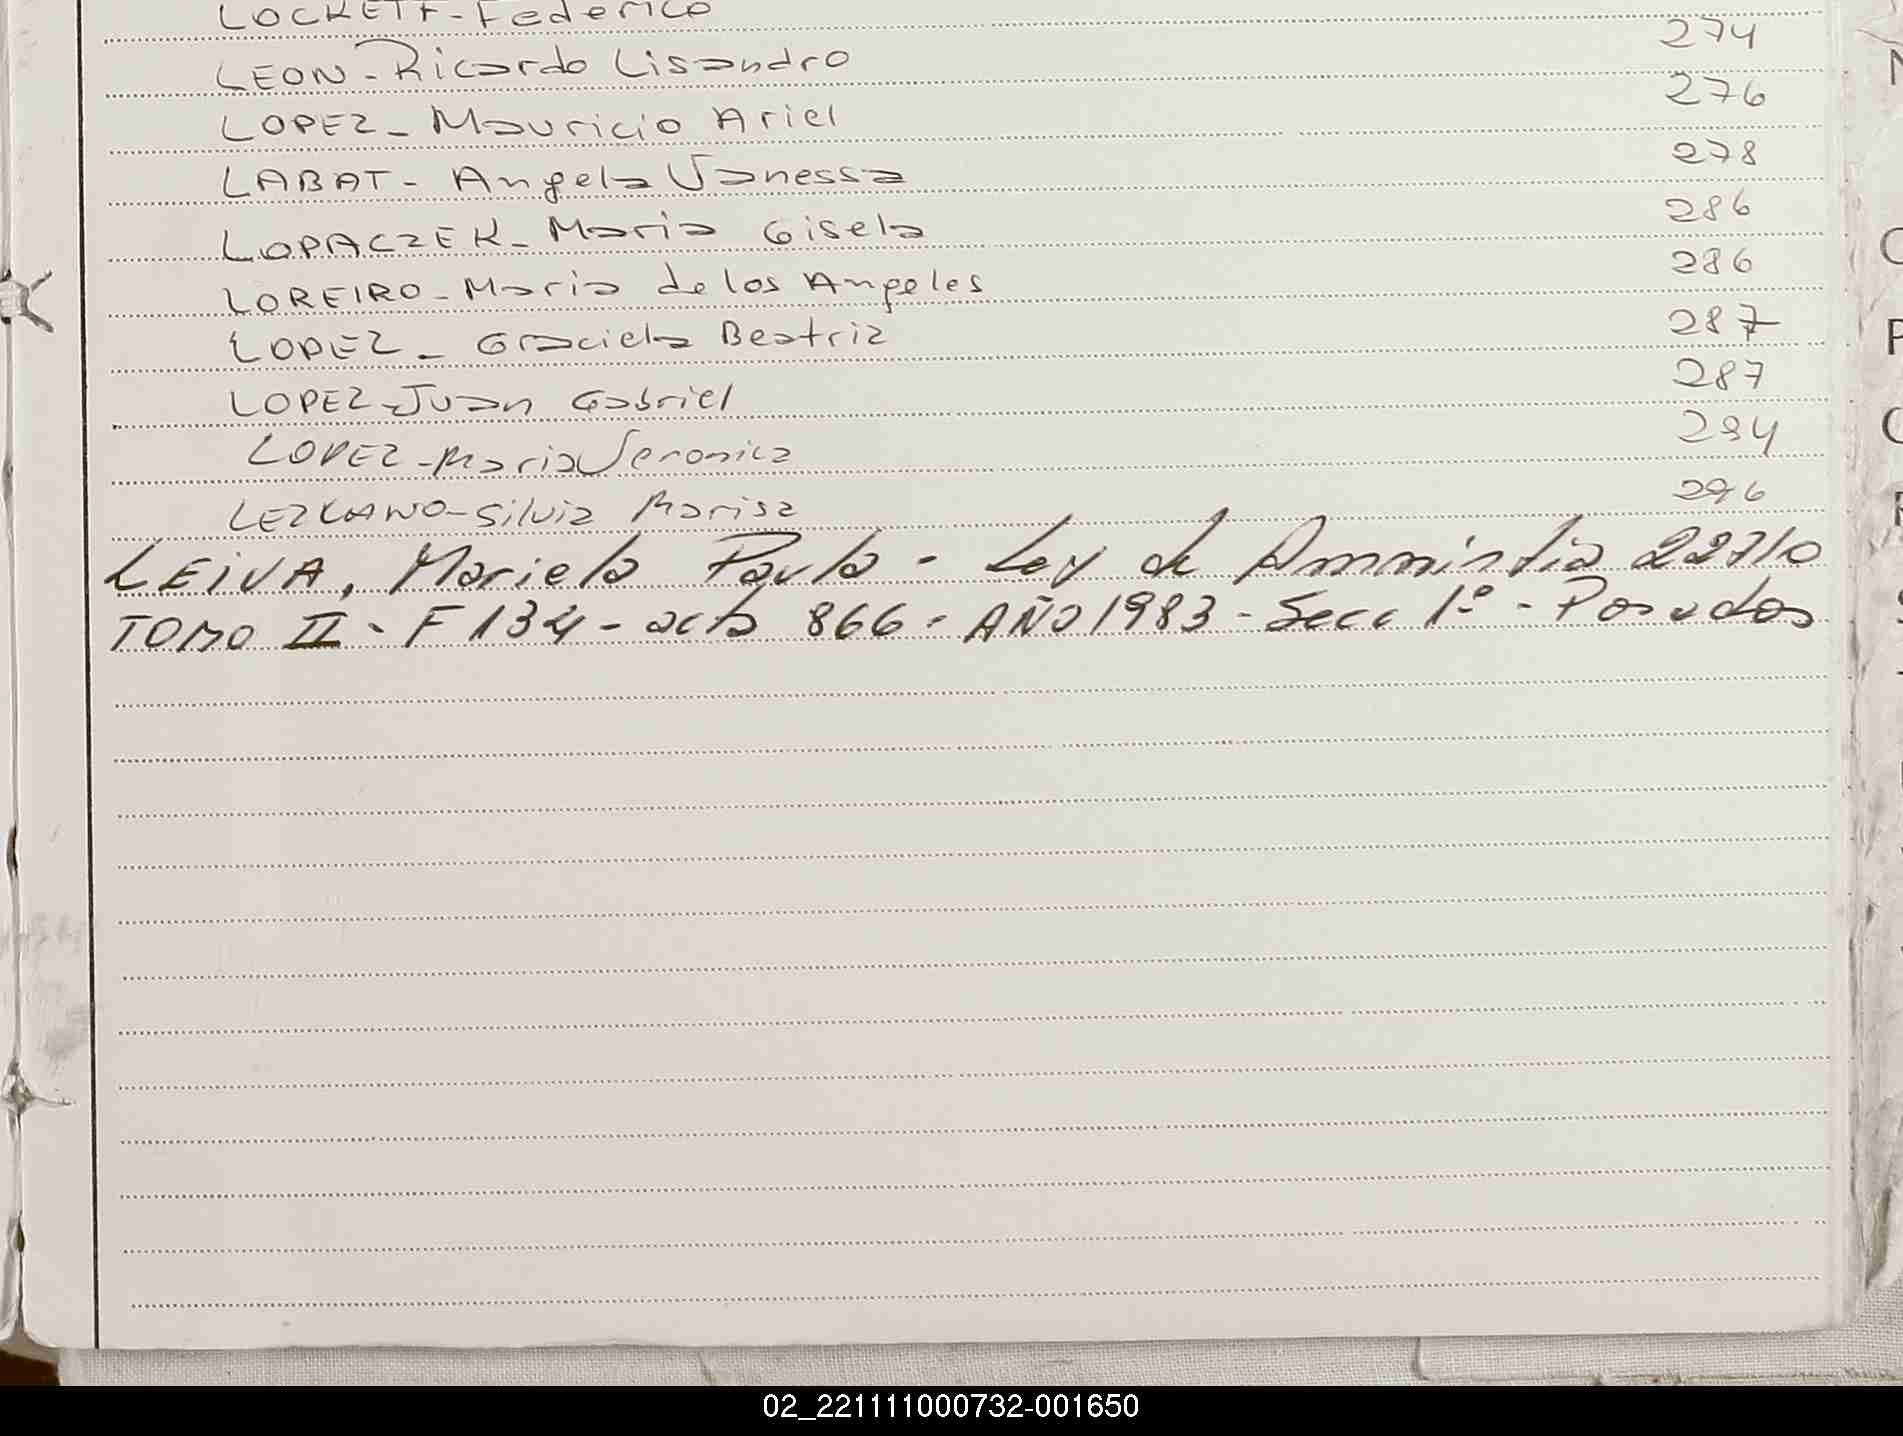 LOCKETT - Federico
LEON - Ricardo Lisandro 274
LOPEZ - Mauricio Ariel 276
LABAT - Angela Vanessa 278
LOPACZEK - Maria Gisela 286
LOREIRO - Maria de los Angeles 286
LOPEZ - Graciela Beatriz 287
LOPEZ - Juan Gabriel 287
LOPEZ - Maria Veronica 294
LEZCANO - Silvia Marisa 296
LEIVA, Mariela Paula - Ley de Ammnistia 22710
TOMO II - F 134 - acta 866 - AÑO 1983 - Secc 1º - Posadas
02_221111000732-001650